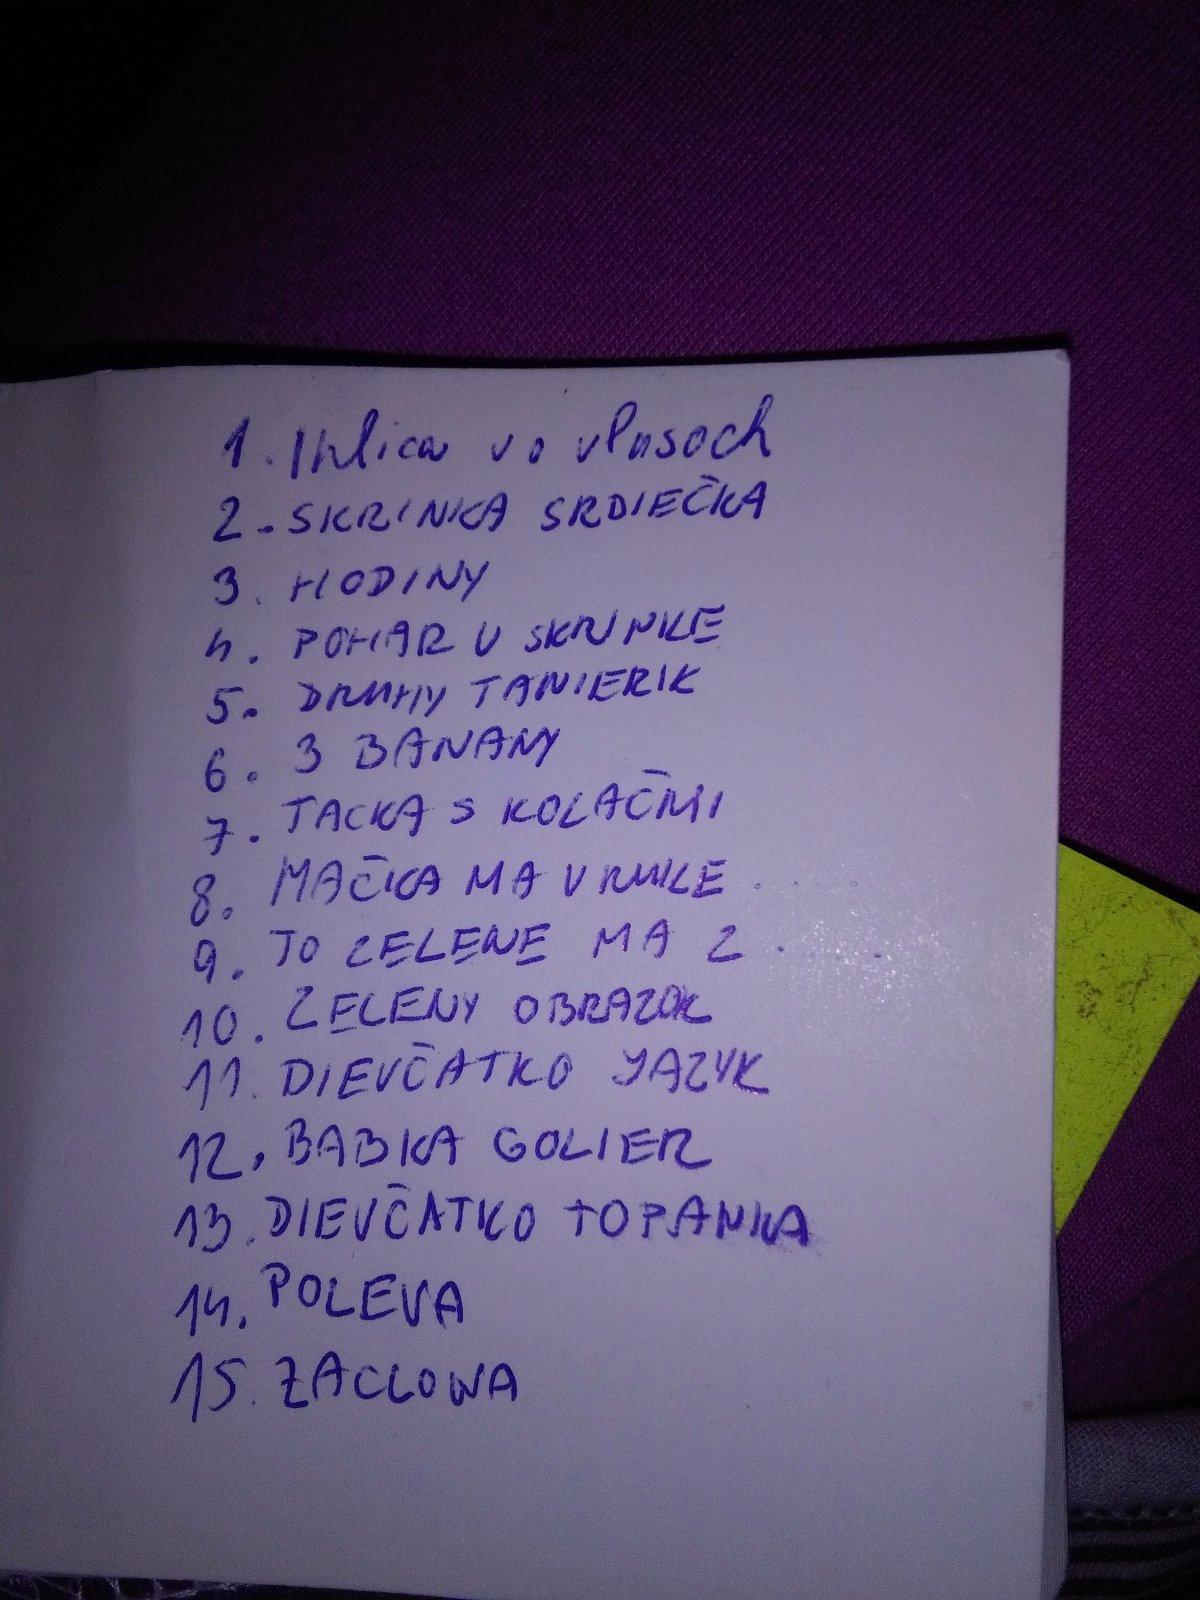 1. Ihlica vo vlasoch
2. SKRINKA SRDIEČKA
3. HODINY
4. POHAR V SKRINKE
5. DRUHY TANIERIK
6. 3 BANANY
7. TACKA S KOLAČMI
8. MAČKA MA V RUKE . . .
9. TO ZELENE MA Z . . . .
10. ZELENY OBRAZOK
11. DIEVČATKO JAZYK
12. BABKA GOLIER
13. DIEVČATKO TOPANKA
14. POLEVA
15. ZACLONA